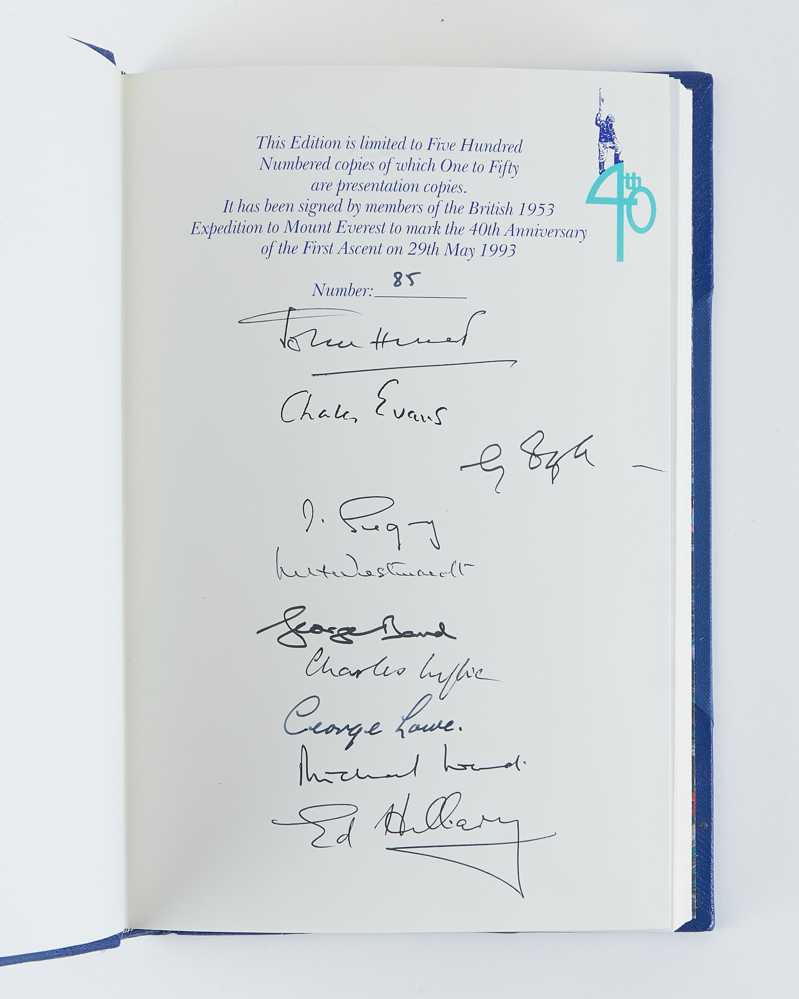 This Edition is limited to Five Hundred
Numbered copies of which One to Fifty
are presentation copies.
It has been signed by members of the British 1953
Expedition to Mount Everest to mark the 40th Anniversary
of the First Ascent on 29th May 1993
40th
Number: 85
John Hunt
Charles Evans
J. Gregory
George Band
Charles Wylie
George Lowe.
Michael Ward.
Ed Hillary